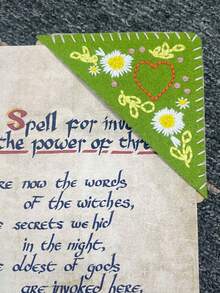 Spell for inv
the power of thre
re now the words
of the witches,
e secrets we hid
in the night,
e oldest of gods
are invoked here,